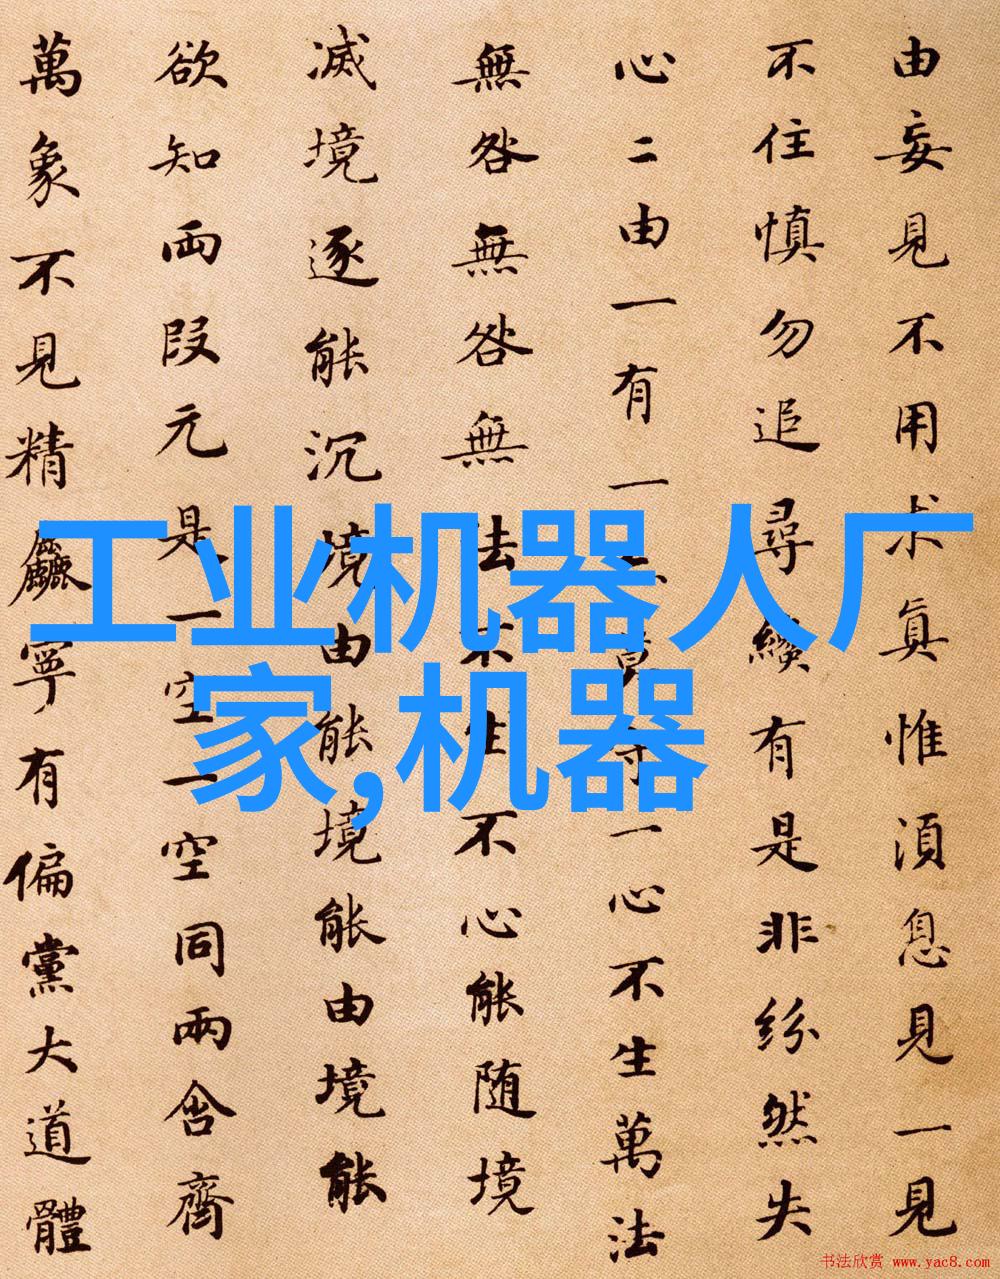 由妄見不用求眞惟湏息見一見
不住慎勿追尋纔有是非紛然失
心二由一有一莫守一心不生萬法
無咎無咎無法不生不心能随境
滅境逐能沉境由能境能由境能
欲知兩段元是一空一空同兩含齊
萬象不見精麤寧有偏黨大道體
工业机器人厂
家,机器
书法欣赏 www.yac8.com